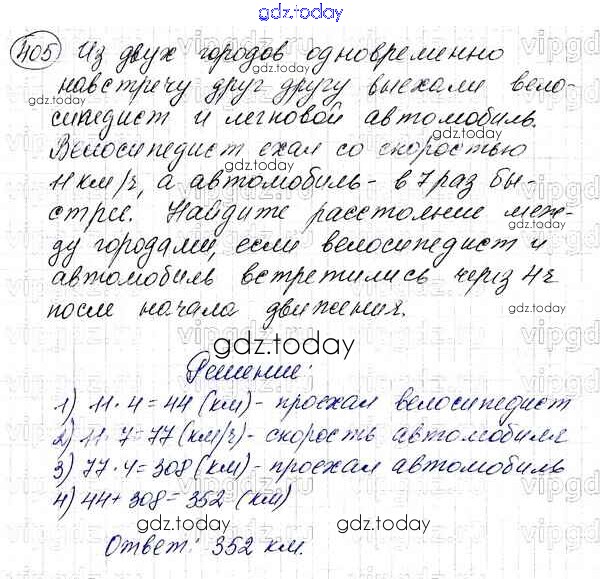 gdz.today
405 Из двух городов одновременно
навстречу друг другу выехали вело-
gdz.today
сипедист и легковой автомобиль.
Велосипедист ехал со скоростью
gdz.today
11 км/ч, а автомобиль - в 7 раз бы-
стрее. Найдите расстояние меж-
ду городами, если велосипедист и
автомобиль встретились через 4 ч
после начала движения.
gdz.today
gdz.today
Решение:
1) 11 · 4 = 44 (км) - проехал велосипедист
2) 11 · 7 = 77 (км/ч) - скорость автомобиля
3) 77 · 4 = 308 (км) - проехал автомобиль
4) 44 + 308 = 352 (км)
gdz.today
gdz.today
Ответ: 352 км.